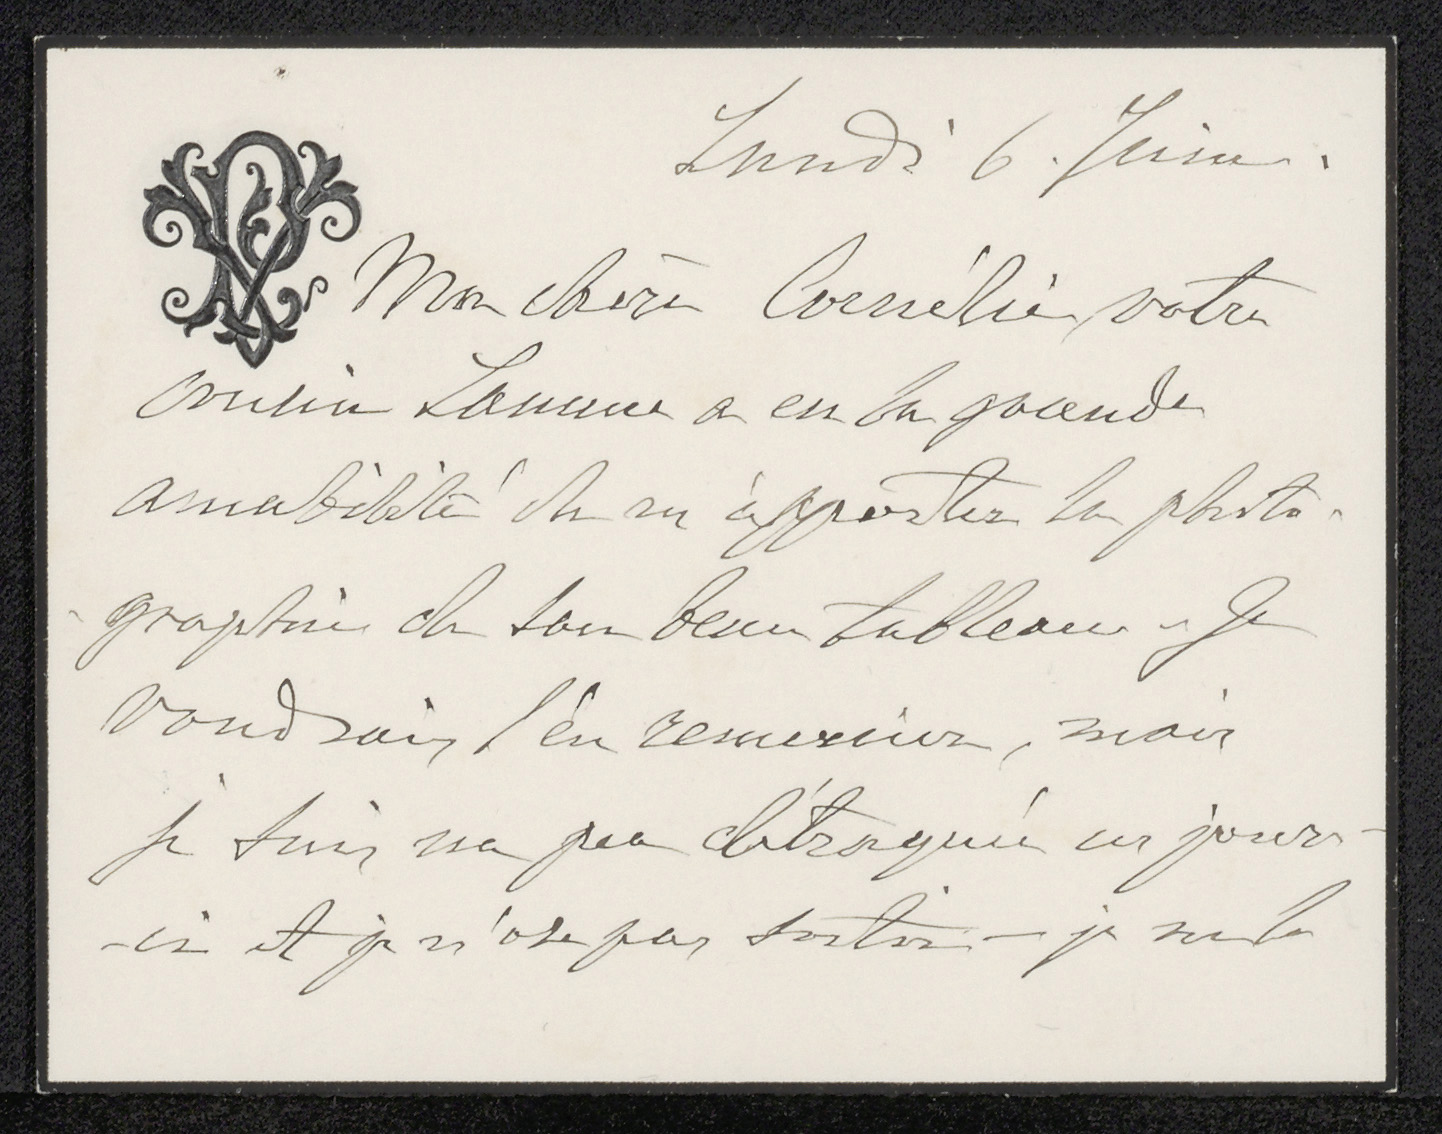 Lundi 6. Juin.
Ma chère Cornélie, votre
cousin a eu la grande
amabilité de m'apporter la photo-
-graphie de son beau tableau - Je
voudrais l'en remercier, mais
je suis un peu détraquée ces jours-
-ci et je n'ose pas sortir - je me le